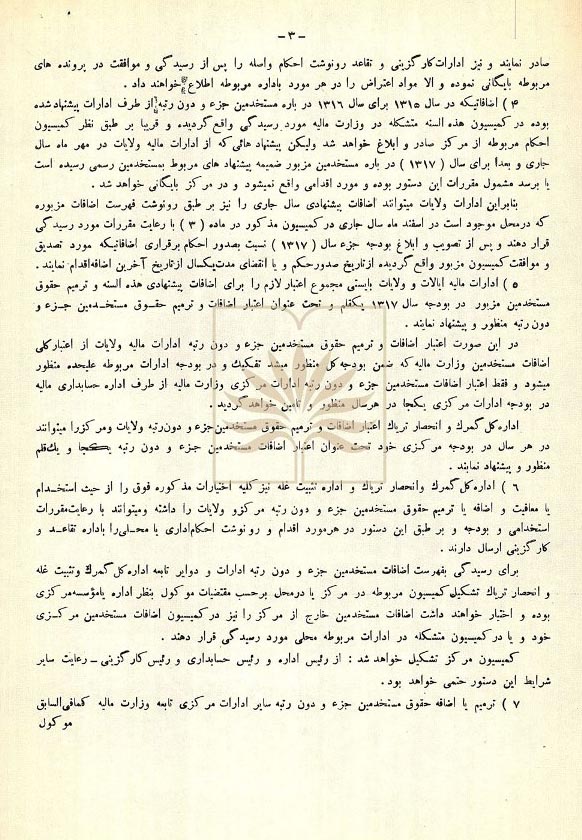 -۳-
صادر نمایند و نیز ادارات کارگزینی و تقاعد رونوشت احکام واصله را پس از رسیدگی و موافقت در پرونده های
مربوطه بایگانی نموده و الا مواد اعتراض را در هر مورد باداره مربوطه اطلاع خواهند داد .
۴ ) اضافاتیکه در سال ۱۳۱۵ برای سال ۱۳۱۶ در باره مستخدمین جزء و دون رتبه از طرف ادارات پیشنهاد شده
بوده در کمیسیون هذه السنه متشکله در وزارت مالیه مورد رسیدگی واقع گردیده و قریبا بر طبق نظر کمیسیون
احکام مربوطه از مرکز صادر و ابلاغ خواهد شد ولیکن پیشنهاد هائی که از ادارات مالیه ولایات در مهر ماه سال
جاری و بعدا برای سال ( ۱۳۱۷ ) در باره مستخدمین مزبور ضمیمه پیشنهاد های مربوط بمستخدمین رسمی رسیده است
یا برسد مشمول مقررات این دستور بوده و مورد اقدامی واقع نمیشود و در مرکز بایگانی خواهد شد .
بنابراین ادارات ولایات میتوانند اضافات پیشنهادی سال جاری را نیز بر طبق رونوشت فهرست اضافات مزبوره
که درمحل موجود است در اسفند ماه سال جاری در کمیسیون مذکور در ماده ( ۳ ) با رعایت مقررات مورد رسیدگی
قرار دهند و پس از تصویب و ابلاغ بودجه جزء سال ( ۱۳۱۷ ) نسبت بصدور احکام برقراری اضافاتیکه مورد تصدیق
و موافقت کمیسیون مزبور واقع گردیده از تاریخ صدور حکم و یا انقضای مدت یکسال از تاریخ آخرین اضافه اقدام نمایند .
۵ ) ادارات مالیه ایالات و ولایات بایستی مجموع اعتبار لازم را برای اضافات پیشنهادی هذه السنه و ترمیم حقوق
مستخدمین مزبور در بودجه سال ۱۳۱۷ یکقلم و تحت عنوان اعتبار اضافات و ترمیم حقوق مستخدمین جزء و
دون رتبه منظور و پیشنهاد نمایند .
در این صورت اعتبار اضافات و ترمیم حقوق مستخدمین جزء و دون رتبه ادارات مالیه ولایات از اعتبار کلی
اضافات مستخدمین وزارت مالیه که ضمن بودجه کل منظور میشد تفکیک و در بودجه ادارات مربوطه علیحده منظور
میشود و فقط اعتبار اضافات مستخدمین جزء و دون رتبه ادارات مرکزی وزارت مالیه از طرف اداره حسابداری مالیه
در بودجه ادارات مرکزی یکجا در هرسال منظور و تامین خواهد گردید .
اداره کل گمرک و انحصار تریاك اعتبار اضافات و ترمیم حقوق مستخدمین جزء و دون رتبه ولایات ومرکز را میتوانند
در هر سال در بودجه مرکزی خود تحت عنوان اعتبار اضافات مستخدمین جزء و دون رتبه یکجا و یک قلم
منظور و پیشنهاد نمایند .
۶ ) اداره کل گمرك وانحصار تریاك و اداره تثبیت غله نیز کلیه اختیارات مذکوره فوق را از حیث استخدام
یا معافیت و اضافه یا ترمیم حقوق مستخدمین جزء و دون رتبه مرکز و ولایات را داشته ومیتوانند با رعایت مقررات
استخدامی و بودجه و بر طبق این دستور در هر مورد اقدام و رونوشت احکام اداری یا محلی را باداره تقاعد و
کارگزینی ارسال دارند .
برای رسیدگی بفهرست اضافات مستخدمین جزء و دون رتبه ادارات و دوایر تابعه اداره کل گمرك وتثبیت غله
و انحصار تریاك تشکیل کمیسیون مربوطه در مرکز یا در محل بر حسب مقتضیات موکول بنظر اداره یا مؤسسه مرکزی
بوده و اختیار خواهند داشت اضافات مستخدمین خارج از مرکز را نیز در کمیسیون اضافات مستخدمین مرکزی
خود و یا در کمیسیون متشکله در ادارات مربوطه محلی مورد رسیدگی قرار دهند .
کمیسیون مرکز تشکیل خواهد شد : از رئیس اداره و رئیس حسابداری و رئیس کارگزینی ـ رعایت سایر
شرایط این دستور حتمی خواهد بود .
۷ ) ترمیم یا اضافه حقوق مستخدمین جزء و دون رتبه سایر ادارات مرکزی تابعه وزارت مالیه کمافی السابق
موکول